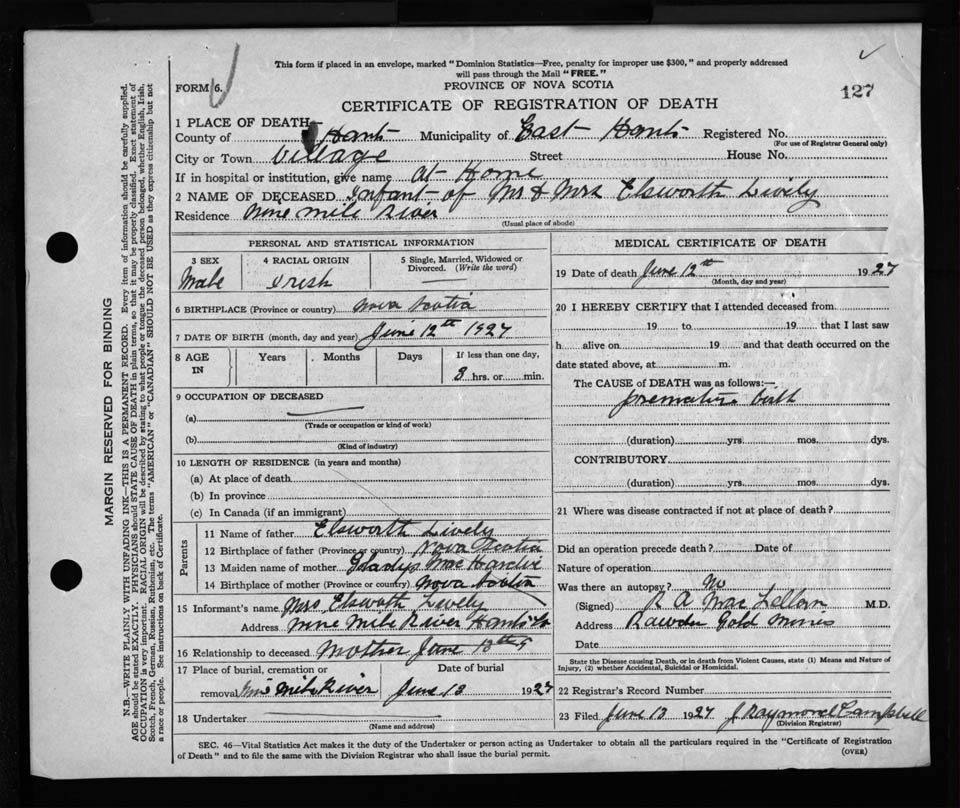 This form if placed in an envelope, marked "Dominion Statistics—Free, penalty for improper use $300," and properly addressed
will pass through the Mail "FREE."
FORM 6.
PROVINCE OF NOVA SCOTIA
127
CERTIFICATE OF REGISTRATION OF DEATH
1 PLACE OF DEATH
County of Hants Municipality of East Hants Registered No.
(For use of Registrar General only)
City or Town Village Street House No.
If in hospital or institution, give name at Home
2 NAME OF DECEASED Infant of Mr & Mrs Elsworth Lively
Residence Nine Mile River
(Usual place of abode)
PERSONAL AND STATISTICAL INFORMATION
3 SEX 4 RACIAL ORIGIN 5 Single, Married, Widowed or
Divorced. (Write the word)
Male Irish
6 BIRTHPLACE (Province or country) Nova Scotia
7 DATE OF BIRTH (month, day and year) June 12th 1927
8 AGE IN Years Months Days If less than one day,
8 hrs. or min.
9 OCCUPATION OF DECEASED
(a)
(Trade or occupation or kind of work)
(b)
(Kind of industry)
10 LENGTH OF RESIDENCE (in years and months)
(a) At place of death
(b) In province
(c) In Canada (if an immigrant)
Parents
11 Name of father Elsworth Lively
12 Birthplace of father (Province or country) Nova Scotia
13 Maiden name of mother Gladys Mac
14 Birthplace of mother (Province or country) Nova Scotia
15 Informant's name Mrs Elsworth Lively
Address Nine Mile River Hants Co
16 Relationship to deceased Mother June 13th
17 Place of burial, cremation or Date of burial
removal Nine Mile River June 13 1927
18 Undertaker
(Name and address)
MEDICAL CERTIFICATE OF DEATH
19 Date of death June 12th 1927
(Month, day and year)
20 I HEREBY CERTIFY that I attended deceased from
19 to 19 that I last saw
h alive on 19 and that death occurred on the
date stated above, at m.
The CAUSE of DEATH was as follows:—
premature birth
(duration) yrs. mos. dys.
CONTRIBUTORY
(duration) yrs. mos. dys.
21 Where was disease contracted if not at place of death?
Did an operation precede death? Date of
Nature of operation
Was there an autopsy? No
(Signed) R A Mac Lellan M.D.
Address Rawdon Gold Mines
Date
State the Disease causing Death, or in death from Violent Causes, state (1) Means and Nature of
Injury, (2) whether Accidental, Suicidal or Homicidal.
22 Registrar's Record Number
23 Filed June 13 1927 J Raymond Campbell
(Division Registrar)
SEC. 46—Vital Statistics Act makes it the duty of the Undertaker or person acting as Undertaker to obtain all the particulars required in the "Certificate of Registration
of Death" and to file the same with the Division Registrar who shall issue the burial permit.
(OVER)
MARGIN RESERVED FOR BINDING
N.B.—WRITE PLAINLY WITH UNFADING INK—THIS IS A PERMANENT RECORD. Every item of information should be carefully supplied.
AGE should be stated EXACTLY. PHYSICIANS should STATE CAUSE OF DEATH in plain terms, so that it may be properly classified. Exact statement of
OCCUPATION is very important. RACIAL ORIGIN will be described by stating to what people or tongue the deceased person belonged, whether English, Irish,
Scotch, French, German, Russian, Ruthenian, etc. The terms "AMERICAN" or "CANADIAN" SHOULD NOT BE USED as they express citizenship but not
a race or people. See instructions on back of Certificate.